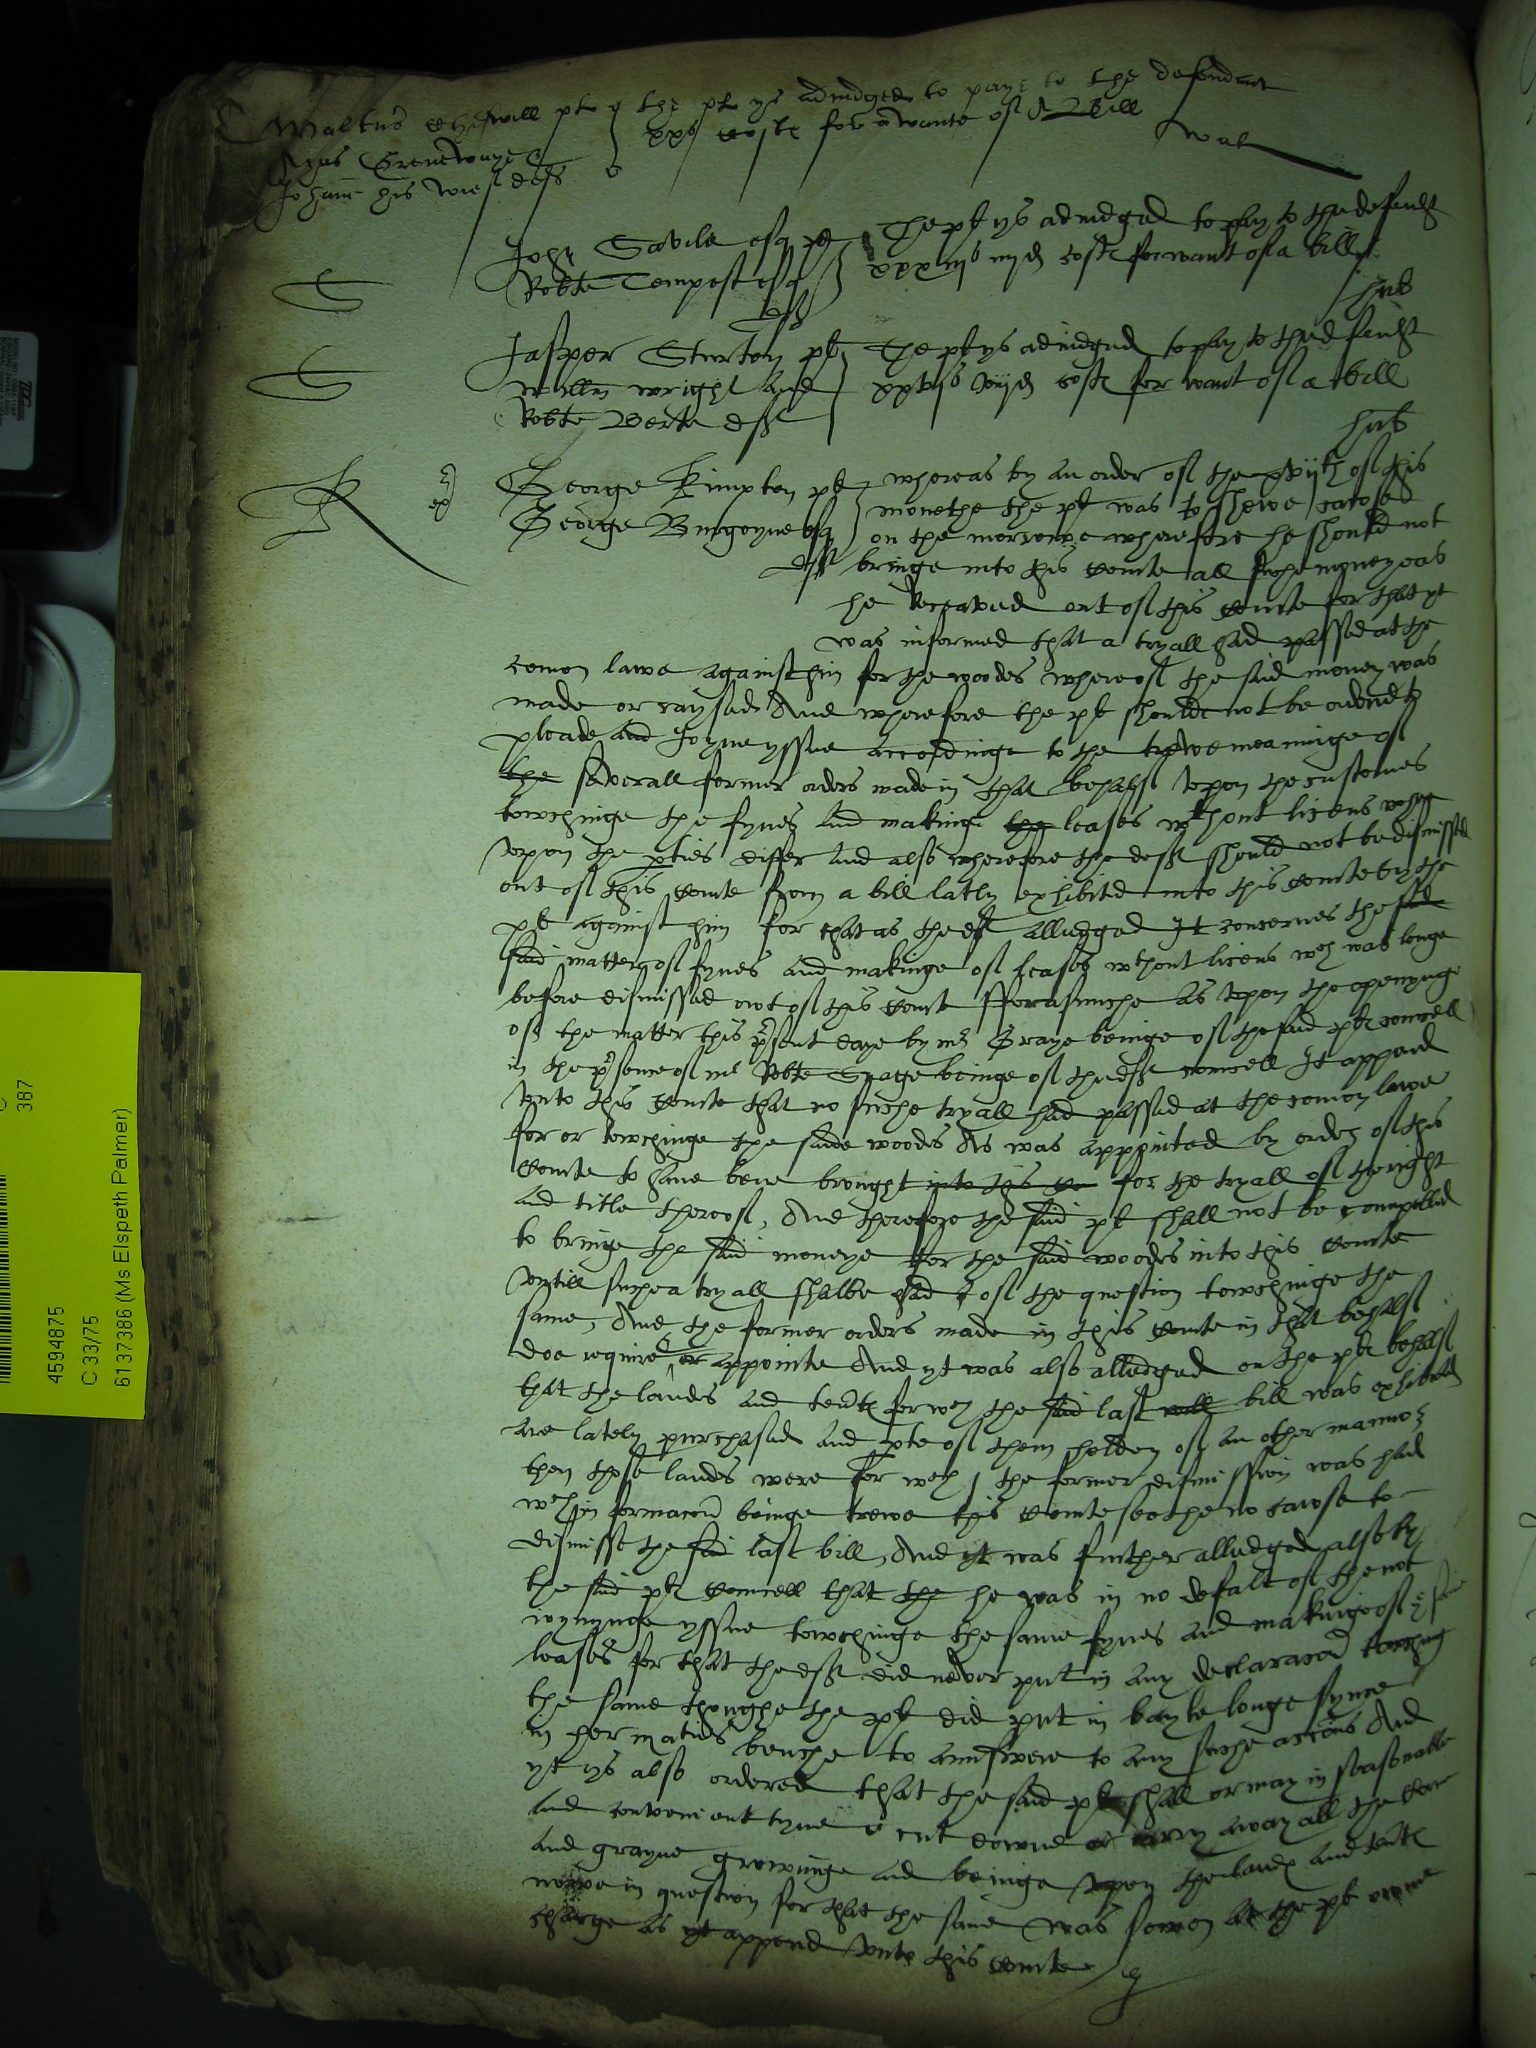 Walterus Chefwill pl the pl ys adiudged to paye to the defendant
Azas Grenewaye xxs costs for wante of A Bill
Johann his wief defs Wal
John Savile esq pl The pl ys adiudged to pay to the defendt
Robte Tempest esq xxxiijs iiijd costs for want of a bill
deft hub
S
Jasper Sturton pl The pl ys adiudged to pay to the defendt
willm wright and xxvjs viijd costs for want of a bill
Robte Berke deft hub
S
R
George Kimpton pl whereas by an order of the xviijth of this
George Burgoyne esq monethe the pl was to shewe cawse
on the morrowe wherefore he should not
deft bringe into this Courte all suche money as
he receaved out of this Courte for that yt
was informed that a tryall had passed at the
comon lawe against him for the woodes whereof the said money was
made or raysed And wherefore the pl should not be ordered to
pleade and Joyne yssue accordinge to the trewe meaninge of
the severall former orders made in that behalf upon the customes
towchinge the fynes and makinge the leases wthout licens
upon the pties differ and also wherefore the deft should not be dismissed
out of this Courte from a bill latly exhibited into this Courte by the
pl against him for that as the deft alledged It concernes the said
said matters of fynes and makinge of leases wthout licens wch was longe
before dismissed owt of this Court fforasmuche as upon the openynge
of the matter this present daye by mr Graye beinge of the said pls councell
in the presence of mr Robte Snagge beinge of the defts councell It appered
unto this Courte that no suche tryall had passed at the comon lawe
for or towchinge the saide woodes As was appointed by order of this
Courte to have bene brought into this Co for the tryall of the right
and title thereof, And therefore the said pl shall not be compelled
to bringe the said moneye for the said woodes into this Courte
untill suche a tryall shalbe had of the question towchinge the
same, And the former orders made in this Courte in that behalf
doe require or appointe And yt was also alledged on the pls behalf
that the landes and tents for wch the said last bill was exhibited
are lately purchased and pte of them holden of an other mannor
then those landes were for wch the former dismission was had
wch informacon beinge trewe this Courte seethe no cawse to
dismisse the said last bill, And yt was further alledged also by
the said pls councell that the he was in no defalt of the not
ioynynge yssue towchinge the same fynes and makinge of
leases for that the deft did never put in any declaracon towching
the same thoughe the pl did put in bayle longe synce
in her maties benche to aunswere to any suche accions And
yt ys also ordered that the said pl shall or may in seasonable
and convenient tyme cut downe or carry away all the Corne
and grayne growinge and beinge upon the lands and tents
nowe in question for that the same was sowen at the pls owne
charge as yt appered unto this Courte
387
4594875
C 33/75
6137386 (Ms Elspeth Palmer)